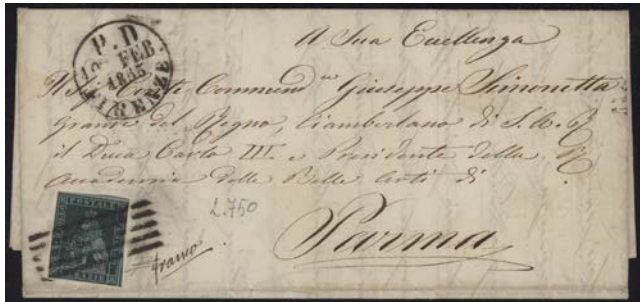 P.D.
10 FEB
1853
FIRENZE
A Sua Eccellenza
Il Sig. Conte Commend.re Giuseppe Simonetta
Grande del Regno, Ciamberlano di S.A.R.
il Duca Carlo III. e Presidente della R.
Accademia delle Belle Arti di
Parma
L.750
franco
POSTALE